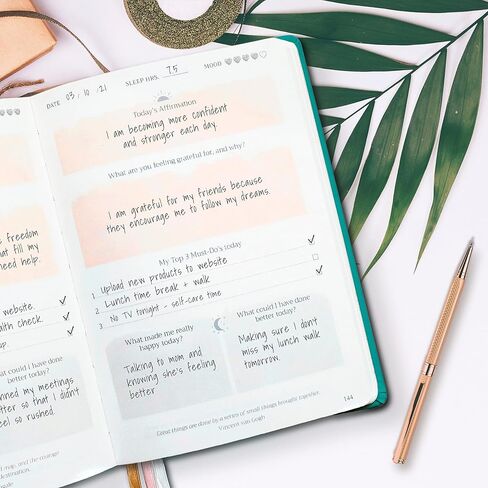 e freedom
that fill my
need help.
website.
alth check.
op.
at could I have done
better today?
nned my meetings
tter so that I didn't
eel so rushed.
DATE 03 . 10 . 21 SLEEP HRS. 7.5 MOOD
Today's Affirmation
I am becoming more confident
and stronger each day.
What are you feeling grateful for, and why?
I am grateful for my friends because
they encourage me to follow my dreams.
My Top 3 Must-Do's today
1 Upload new products to website
2 Lunch time break + walk
3 No TV tonight - self-care time
What made me really
happy today?
Talking to mom and
knowing she's feeling
better
What could I have done
better today?
Making sure I don't
miss my lunch walk
tomorrow.
Great things are done by a series of small things brought together.
Vincent van Gogh
144